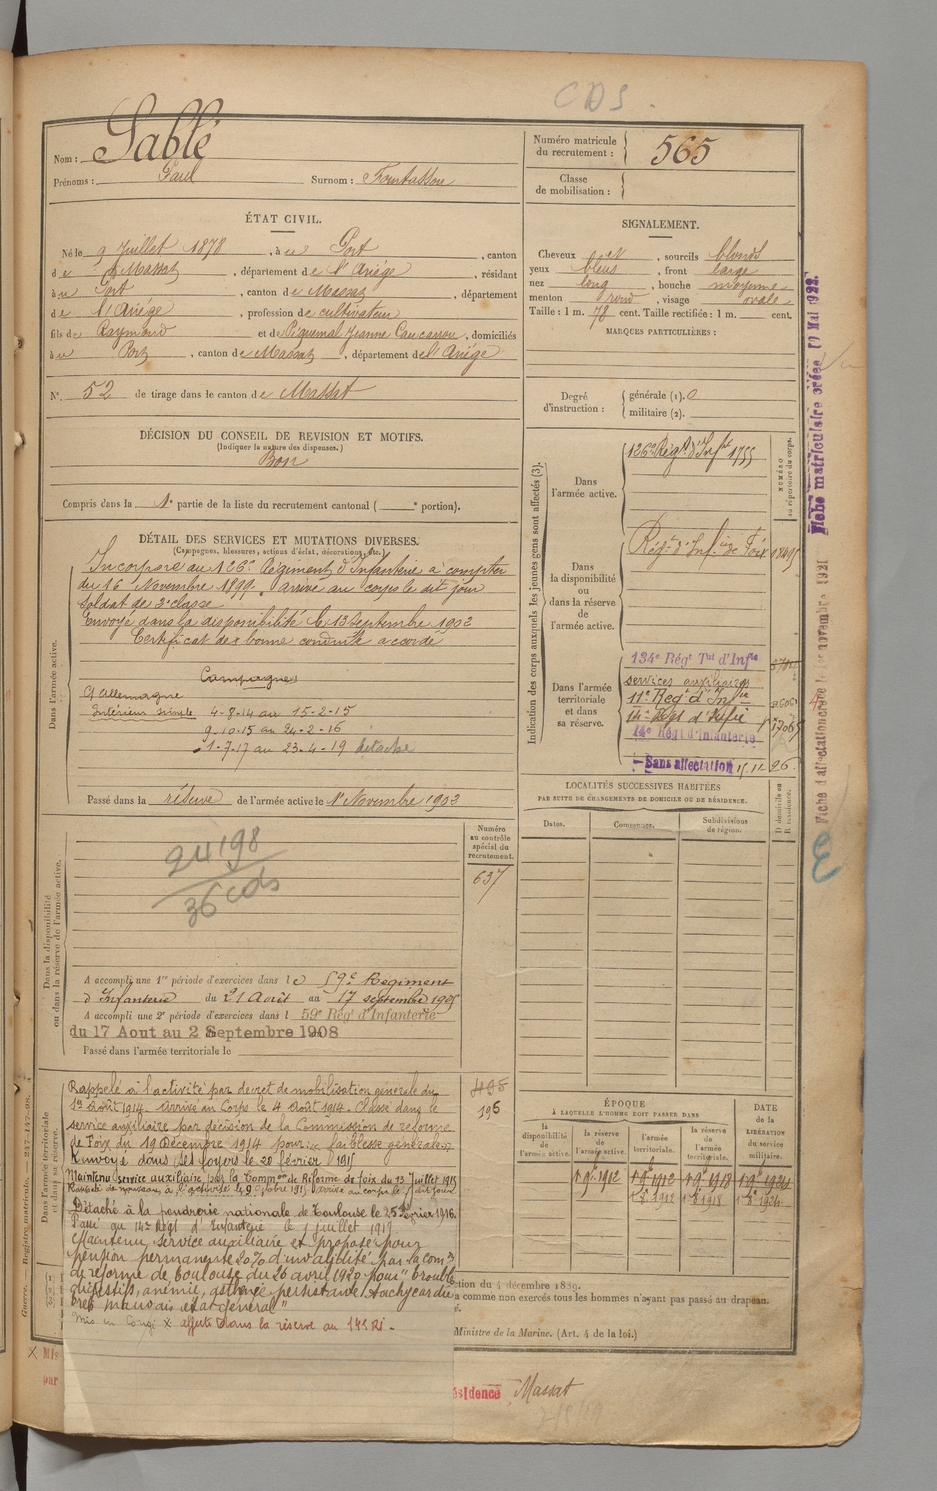 CDS.
Nom : Sablé
Prénoms : Paul Surnom :
Numéro matricule du recrutement : 565
Classe de mobilisation :
ÉTAT CIVIL.
Né le 9 Juillet 1878, à u Port, canton
de Massat, département de l'Ariège, résidant
à u Port, canton de Massat, département
de l'Ariège, profession de cultivateur
fils de Raymond et de Piquemal Jeanne Caucarou, domiciliés
à u Port, canton de Massat, département de l'Ariège
N°. 52 de tirage dans le canton de Massat
DÉCISION DU CONSEIL DE REVISION ET MOTIFS.
(Indiquer la nature des dispenses.)
Bon
Compris dans la 1e partie de la liste du recrutement cantonal ( e portion).
SIGNALEMENT.
Cheveux , sourcils blonds
yeux bleus, front large
nez long, bouche moyenne
menton rond, visage ovale
Taille : 1 m. 78 cent. Taille rectifiée : 1 m. cent.
MARQUES PARTICULIÈRES :
Degré d'instruction : générale (1). 0
militaire (2).
DÉTAIL DES SERVICES ET MUTATIONS DIVERSES.
(Campagnes, blessures, actions d'éclat, décorations, etc.)
Dans l'armée active.
Incorporé au 126e Régiment d'Infanterie à compter
du 16 Novembre 1899. arrivé au corps le dit jour
soldat de 2e classe
Envoyé dans la disponibilité le 13 Septembre 1902
Certificat de bonne conduite accordé
Campagnes
C/ Allemagne
Intérieur simple 4-8-14 au 15-2-15
9-10-15 au 24-2-16
1-7-17 au 23-4-19 détaché
Passé dans la réserve de l'armée active le 1er Novembre 1902
Indication des corps auxquels les jeunes gens sont affectés (3).
NUMÉRO au répertoire du corps.
Dans l'armée active.
126e Régt d'Inf 1755
Dans la disponibilité ou dans la réserve de l'armée active.
Régt d'Inf de Foix
Dans l'armée territoriale et dans sa réserve.
134e Régt Tal d'Infie
services auxiliaires
11e Reg d'Infie
14e Regt d'Infie
14e Régt d'Infanterie
Sans affectation 15 11 26
Fiche matriculaire créée 10 Mai 1922
Fiche d'affectation créée le novembre 1921
LOCALITÉS SUCCESSIVES HABITÉES
PAR SUITE DE CHANGEMENTS DE DOMICILE OU DE RÉSIDENCE.
Dates.
Communes.
Subdivisions de région.
D. domicile ou R. résidence.
Dans la disponibilité ou dans la réserve de l'armée active.
Numéro au contrôle spécial du recrutement.
637
24198
36 cds
A accompli une 1re période d'exercices dans le 59e Régiment
d'Infanterie du 21 Août au 17 septembre 1905
A accompli une 2e période d'exercices dans l 59e Régt d'Infanterie
du 17 Aout au 2 Septembre 1908
Passé dans l'armée territoriale le
Guerre. — Registre matricule. — 247-147-98.
Dans l'armée territoriale et dans sa réserve.
405
196
Rappelé à l'activité par décret de mobilisation générale du
1er Août 1914. Arrivé au Corps le 4 Août 1914. Classé dans le
service auxiliaire par décision de la Commission de reforme
de Foix du 19 Décembre 1914 pour faiblesse générale
Renvoyé dans ses foyers le 20 février 1915
Maintenu service auxiliaire par la Common de Réforme de foix du 13 Juillet 1915
Rappelé de nouveau à l'activité le 9 8bre 1915 arrivé au corps le dit jour
Détaché à la poudrerie nationale de Toulouse le 25 Février 1916.
Passé au 14e Régt d'Infanterie le 1 juillet 1917
Maintenu service auxiliaire et proposé pour
pension permanente 20% d'invalidité par la comon
de reforme de Toulouse du 26 avril 1920 pour "troubles
digestifs, anémie, asthénie persistante, tachycardie
très mauvais état general"
Mis en Congé X affecté dans la réserve au 14e RI.
ÉPOQUE
À LAQUELLE L'HOMME DOIT PASSER DANS
la disponibilité de l'armée active.
la réserve de l'armée active.
l'armée territoriale.
la réserve de l'armée territoriale.
DATE de la LIBÉRATION du service militaire.
1 9e 1912 1 9e 1912 1 9e 1918 1 9e 1924
1 8e 1912 1 8e 1918 1 8e 1924
ction du 4 décembre 1889.
a comme non exercés tous les hommes n'ayant pas passé au drapeau.
Ministre de la Marine. (Art. 4 de la loi.)
X Mis
par
ésidence Massat